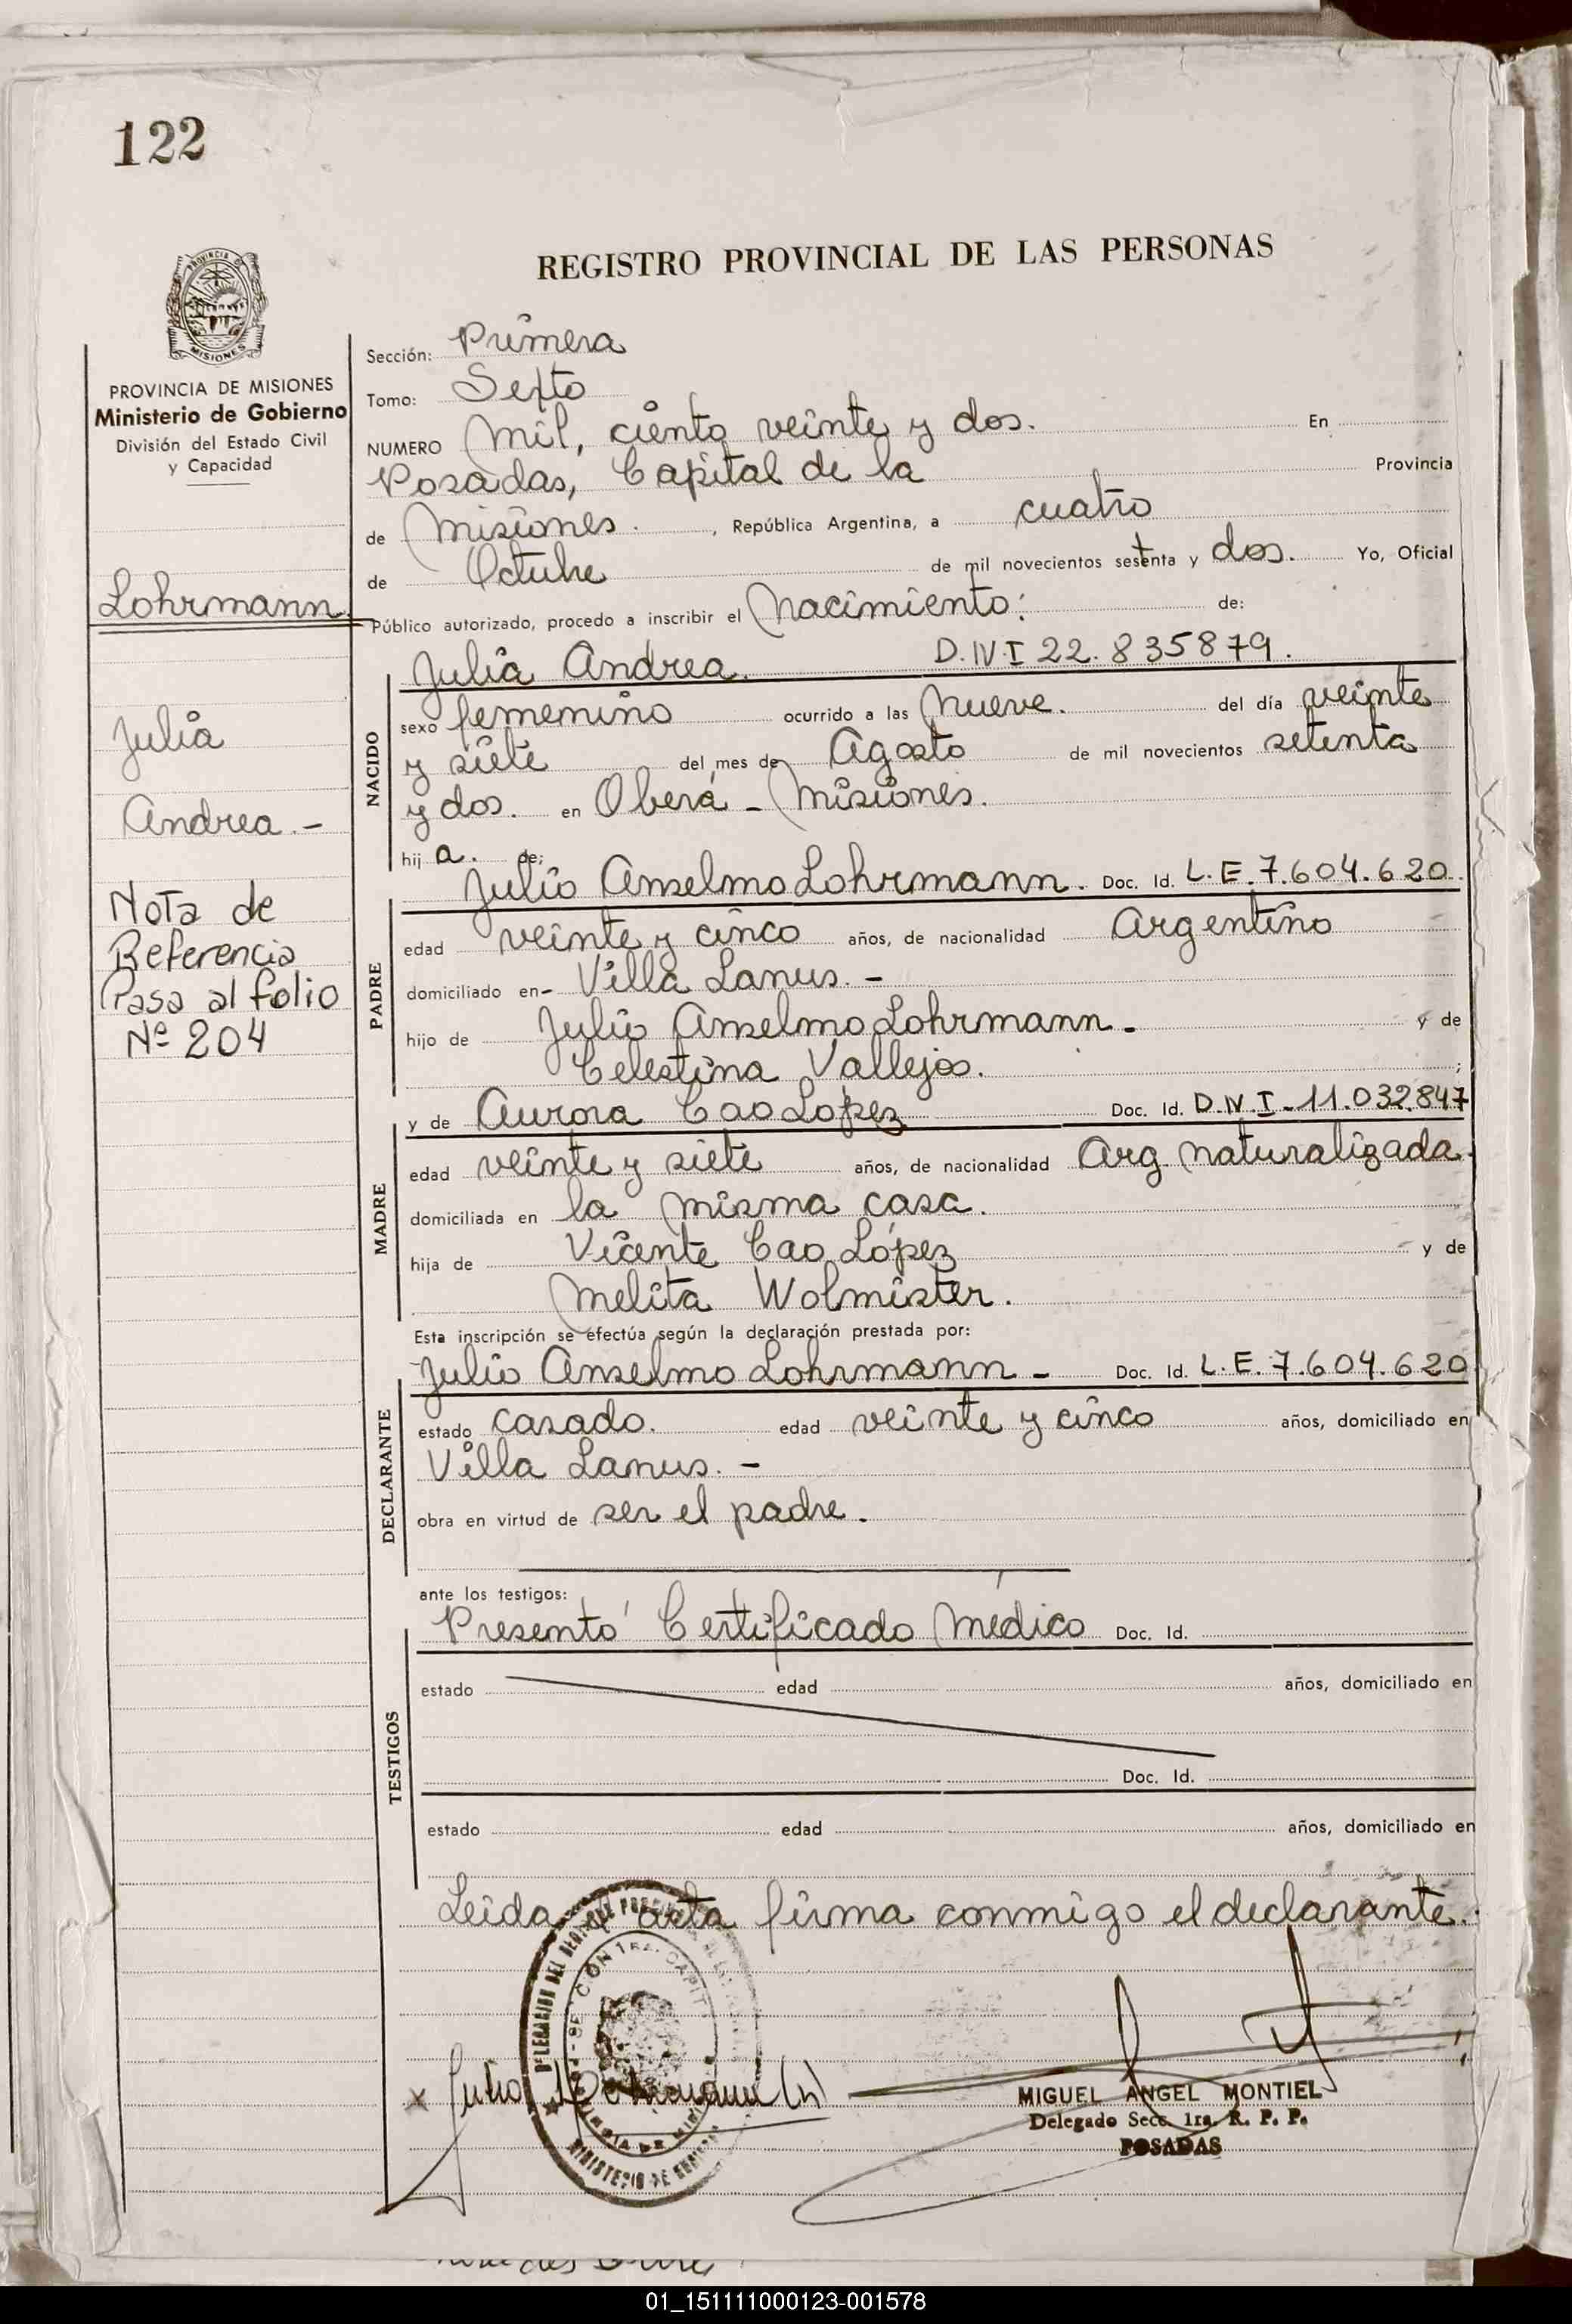 122
REGISTRO PROVINCIAL DE LAS PERSONAS
PROVINCIA DE
MISIONES
PROVINCIA DE MISIONES
Ministerio de Gobierno
División del Estado Civil
y Capacidad
Lohrmann
Julia
Andrea.-
Nota de
Referencia
Pasa al folio
Nº 204
Sección: Primera
Tomo: Sexto
NUMERO Mil, ciento veinte y dos. En
Posadas, Capital de la Provincia
de Misiones. , República Argentina, a cuatro
de Octubre de mil novecientos setenta y dos. Yo, Oficial
Público autorizado, procedo a inscribir el Nacimiento: de:
Julia Andrea. D.N.I 22.835879.
NACIDO
sexo femenino ocurrido a las nueve. del día veinte
y siete del mes de Agosto de mil novecientos setenta
y dos. en Oberá - Misiones.
hij a. de:
Julio Anselmo Lohrmann. Doc. Id. L.E. 7.604.620.
PADRE
edad veinte y cinco años, de nacionalidad Argentino
domiciliado en- Villa Lanus. -
hijo de Julio Anselmo Lohrmann - y de
Celestina Vallejos. ;
y de Aurora Cao Lopez Doc. Id. D.N.I-11.032.847
MADRE
edad veinte y siete años, de nacionalidad Arg. naturalizada.
domiciliada en la misma casa.
hija de Vicente Cao López y de
Melita Wolmister.
Esta inscripción se efectúa según la declaración prestada por:
Julio Anselmo Lohrmann - Doc. Id. L.E. 7.604.620
DECLARANTE
estado casado. edad veinte y cinco años, domiciliado en
Villa Lanus. -
obra en virtud de ser el padre.
ante los testigos:
Presentó Certificado Médico Doc. Id.
TESTIGOS
estado edad años, domiciliado en
Doc. Id.
estado edad años, domiciliado en
Leida acta firma conmigo el declarante.
x Julio Lohrmann (h)
MIGUEL ANGEL MONTIEL
Delegado Secc. 1ra. R. P. P.
POSADAS
01_151111000123-001578